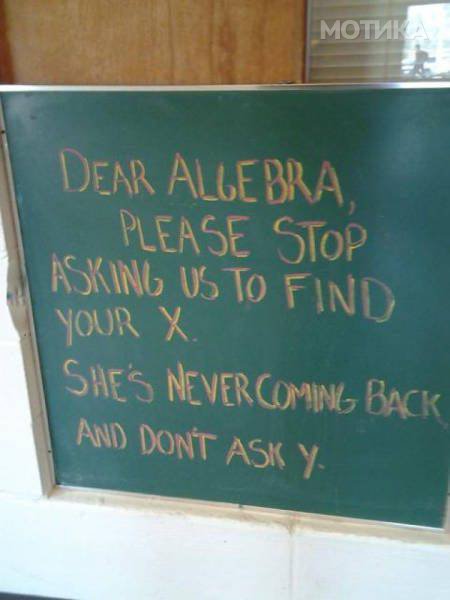 МОТИКА
DEAR ALGEBRA,
PLEASE STOP
ASKING US TO FIND
YOUR X.
SHE'S NEVER COMING BACK
AND DON'T ASK Y.